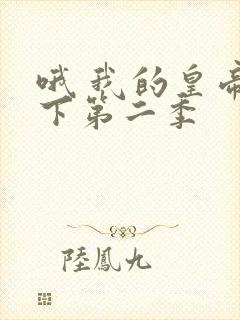 哦 我的皇帝
下第二季
陸鳳九